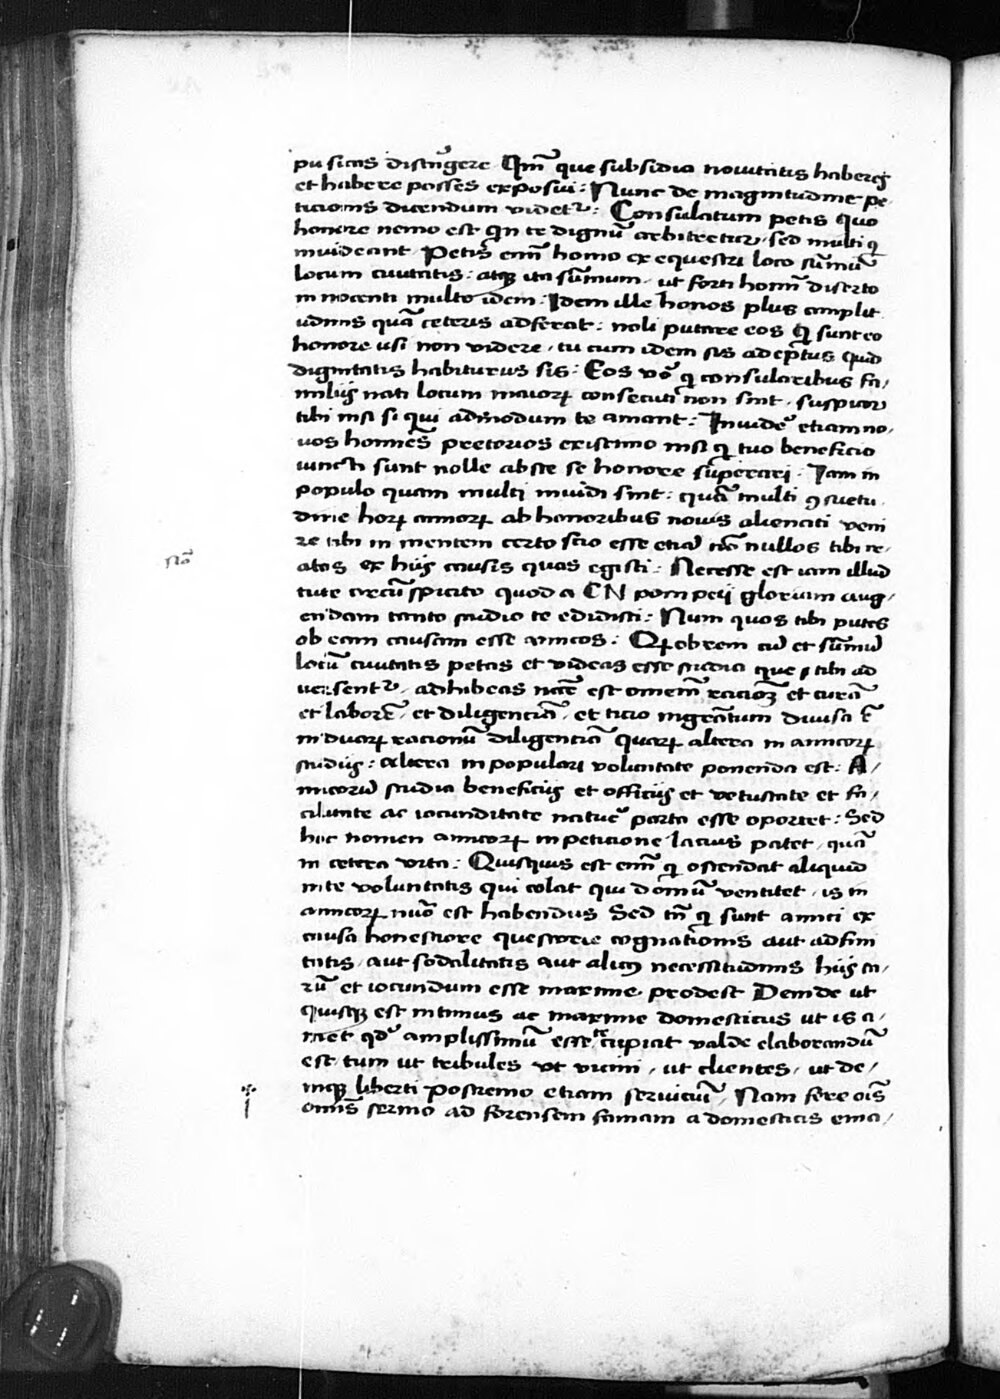 pu sicas distrīgere Qm̄ que subsidia nouitatis haberes
et habere posses exposui : Nunc de magnitudine pe,
ticionis dicendum videtr̄ : Consulatum petis quo
honore nemo est qn te dignū arbitretur, sed multi q̄
inuideant Petis em̄ homo ex equestri loco sūmū
locum ciuitatis : atqꝫ ita sūmum, ut forti homī diserto
innocenti multo idem : Idem ille honos plus amplit
udinis quā ceteris adferat : noli putare eos q̄ sunt eo
honore usi non videre, tu cum idem sis adeptus quid
dignitatis habiturus sis : Eos vo᷒ q̄ consularibus fa,
milijs nati locum maioꝝ consecuti non sint, suspicor
tibi nisi si qui admodum te amant : Inuide᷒ etiam no,
uos homines̄ pretorios existimo nisi q̄ tuo beneficio
iuncti sunt nolle abste se honore sup̄erari : Iam in
populo quam multi inuidi sint : quā multi ꝯsuetu
dine hoꝝ annoꝝ ab honoribus nouis alienati veni
re tibi in mentem certo scio esse etiā nō nullos tibi re,
atos ex hijs causis quas egisti : Necesse est iam illud
tute circū spicito quod a CN pompeij gloriam aug,
endam tanto studio te edidisti : Num quos tibi putes
ob eam causam esse amicos : Qꝛobrem cū et sūmū
locū ciuitatis petas et videas esse studia que tibi ad
uersentr̄, adhibeas nc̄e est omem̄ racioꝫ et curā
et laborē, et diligenciā, et ticio mgrātum diuisa ē
in duaꝝ racionū diligenciā quaꝝ altera in amicoꝝ
studijs : altera in populari voluntate ponenda est : A,
micorū studia beneficijs et officijs et vetustate et fa,
cilitate ac iocunditate natur᷒ parta esse oportet : Sed
hoc nomen amicoꝝ in peticione lacius patet, quā
in cetera vita : Quisquis est em̄ q̄ ostendat aliquid
in te voluntatis qui colat qui domū ventitet, is in
amicoꝝ nūo est habendus Sed tn̄ q̄ sunt amici ex
causa honestiore questorie cognationis aut adfini
tatis, aut sodalitatis aut alicꝰ necessitudinis hijs ca,
rū et iocundum esse maxime, prodest Deinde ut
quisqꝫ est intimus ac maxime domesticus ut is a,
met qd᷒ amplissimū esse te cupiat valde elaborandū
est, tum ut tribules vt vicini, ut clientes, ut de,
niqꝫ liberti postremo etiam seruicuī, Nam fere ois̄
omis̄ sermo ad forensem famam a domesticis ema,